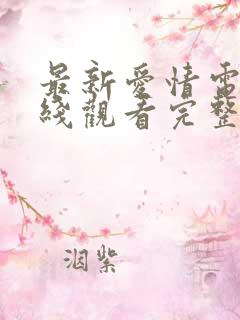 最新愛情電
綫觀看完整
涸紫